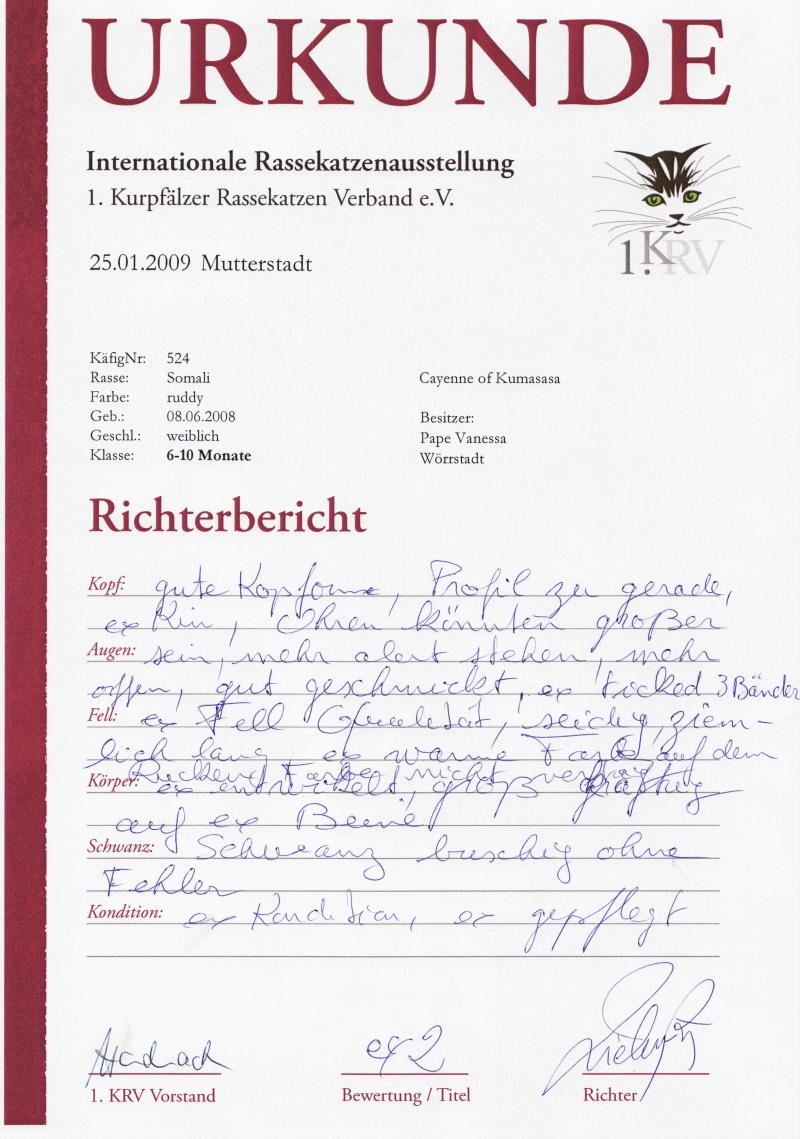 URKUNDE
Internationale Rassekatzenausstellung
1. Kurpfälzer Rassekatzen Verband e.V.
25.01.2009 Mutterstadt
1. KRV
KäfigNr: 524
Rasse: Somali
Farbe: ruddy
Geb.: 08.06.2008
Geschl.: weiblich
Klasse: 6-10 Monate
Cayenne of Kumasasa
Besitzer:
Pape Vanessa
Wörrstadt
Richterbericht
Kopf: gute Kopfform, Profil zu gerade,
ex Kin, Ohren könnten großer
Augen: sein, mehr alert stehen, mehr
offen, gut geschminkt, ex ticked 3 Bänder
Fell: ex Fell Qualität, seidig, ziem-
lich lang, ex warme Farb auf dem
Rücken, Farbe nicht
Körper: ex entwickelt, groß kräftig
auf ex Beine
Schwanz: Schwanz buschig ohne
Fehler
Kondition: ex Kondition, ex gepflegt
ex 2
1. KRV Vorstand
Bewertung / Titel
Richter